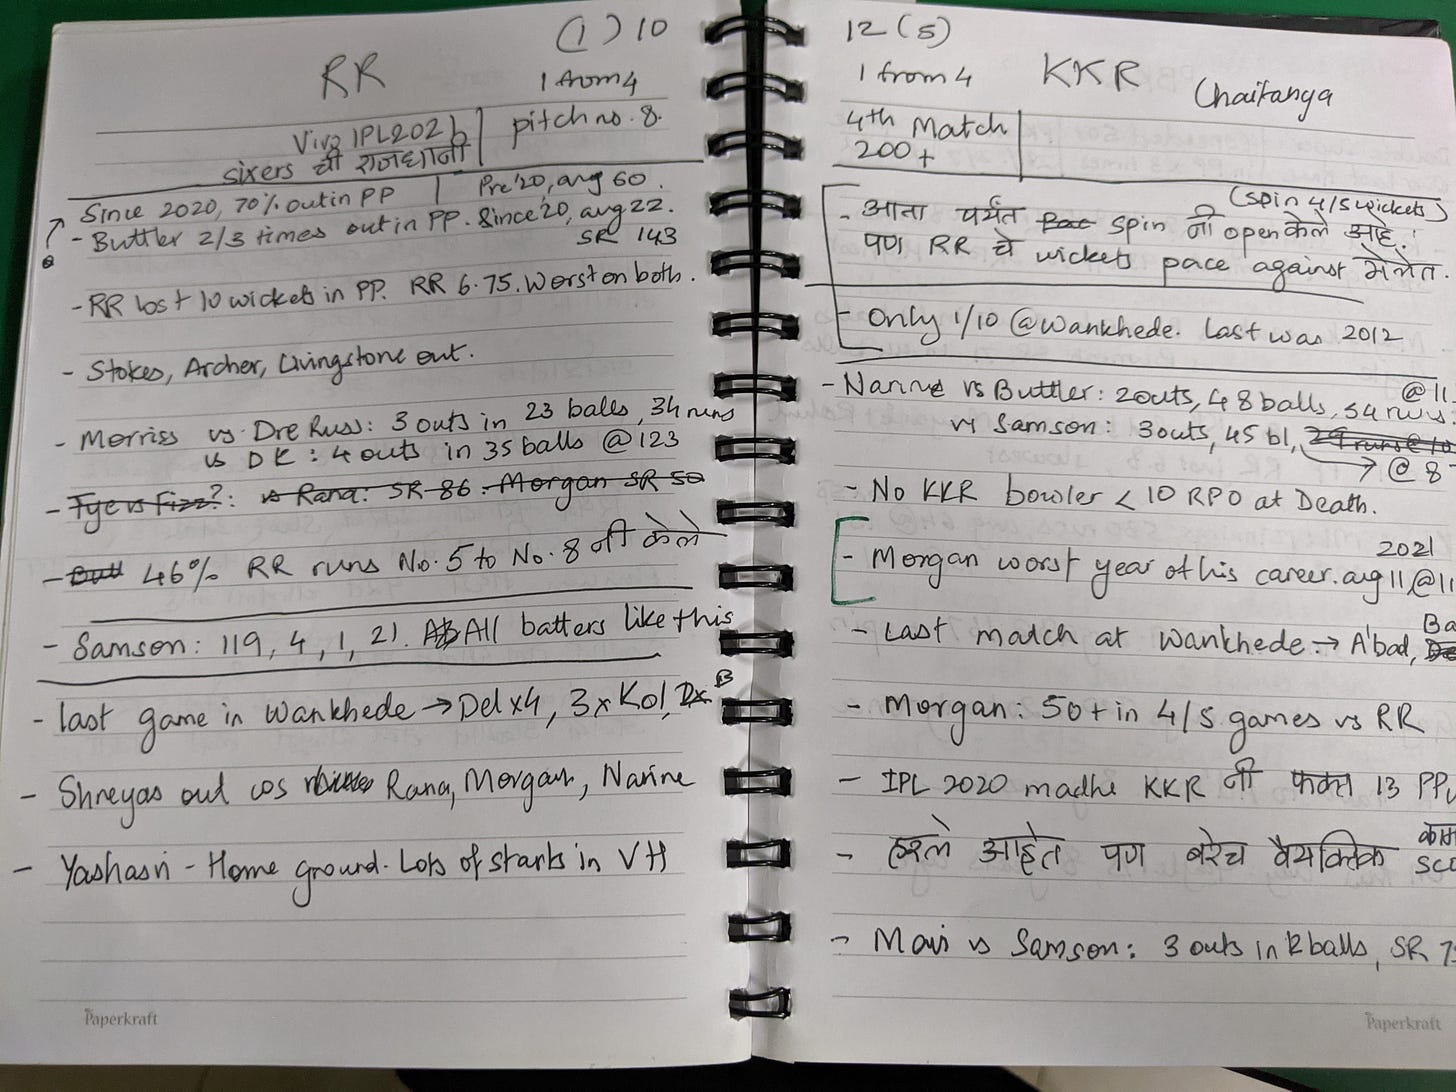 (1) 10
RR
1 from 4
Vivo IPL 202
sixers ची राजधानी
pitch no. 8.
Since 2020, 70% out in PP
Pre '20, avg 60.
- Buttler 2/3 times out in PP. Since '20, avg 22.
SR 143
- RR lost 10 wickets in PP. RR 6.75. Worst on both.
- Stokes, Archer, Livingstone out.
- Morriss vs Dre Russ: 3 outs in 23 balls, 34 runs
vs DK: 4 outs in 35 balls @123
- Tye vs Fizz?: vs Rana: SR 86. Morgan SR 50
- 46% RR runs No. 5 to No. 8 नी केले
- Samson: 119, 4, 1, 21. All batters like this
- last game in Wankhede → Del x4, 3x Kol,
- Shreyas out cos Rana, Morgan, Narine
- Yashasvi - Home ground. Lots of starts in VH
Paperkraft
12 (5)
1 from 4
KKR
Chaitanya
4th Match
200+
(spin 4/5 wickets)
- आता पर्यंत spin नी open केले आहे.
पण RR चे wickets pace against गेलेत.
- Only 1/10 @Wankhede. Last was 2012
@11.
- Narine vs Buttler: 2outs, 48 balls, 54 runs.
vs Samson: 3outs, 45 bl,
→ @ 8
- No KKR bowler < 10 RPO at Death.
2021
- Morgan worst year of his career. avg 11 @11
- Last match at Wankhede :→ A'bad,
- Morgan: 50+ in 4/5 games vs RR
- IPL 2020 madhe KKR नी फक्त 13 PP
- हरले आहेत पण बरेच वैयक्तिक
- Mavi vs Samson: 3 outs in 12 balls, SR
Paperkraft